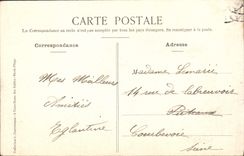 CARTE POSTALE
La Correspondance au recto n'est pas acceptée par tous les pays étrangers. (Se renseigner à la poste)
Correspondance
Adresse
Mes Meilleures
Amitiés
Eglantine
Madame Lemarié
14 rue de
Puteaux
Courbevoie
Seine